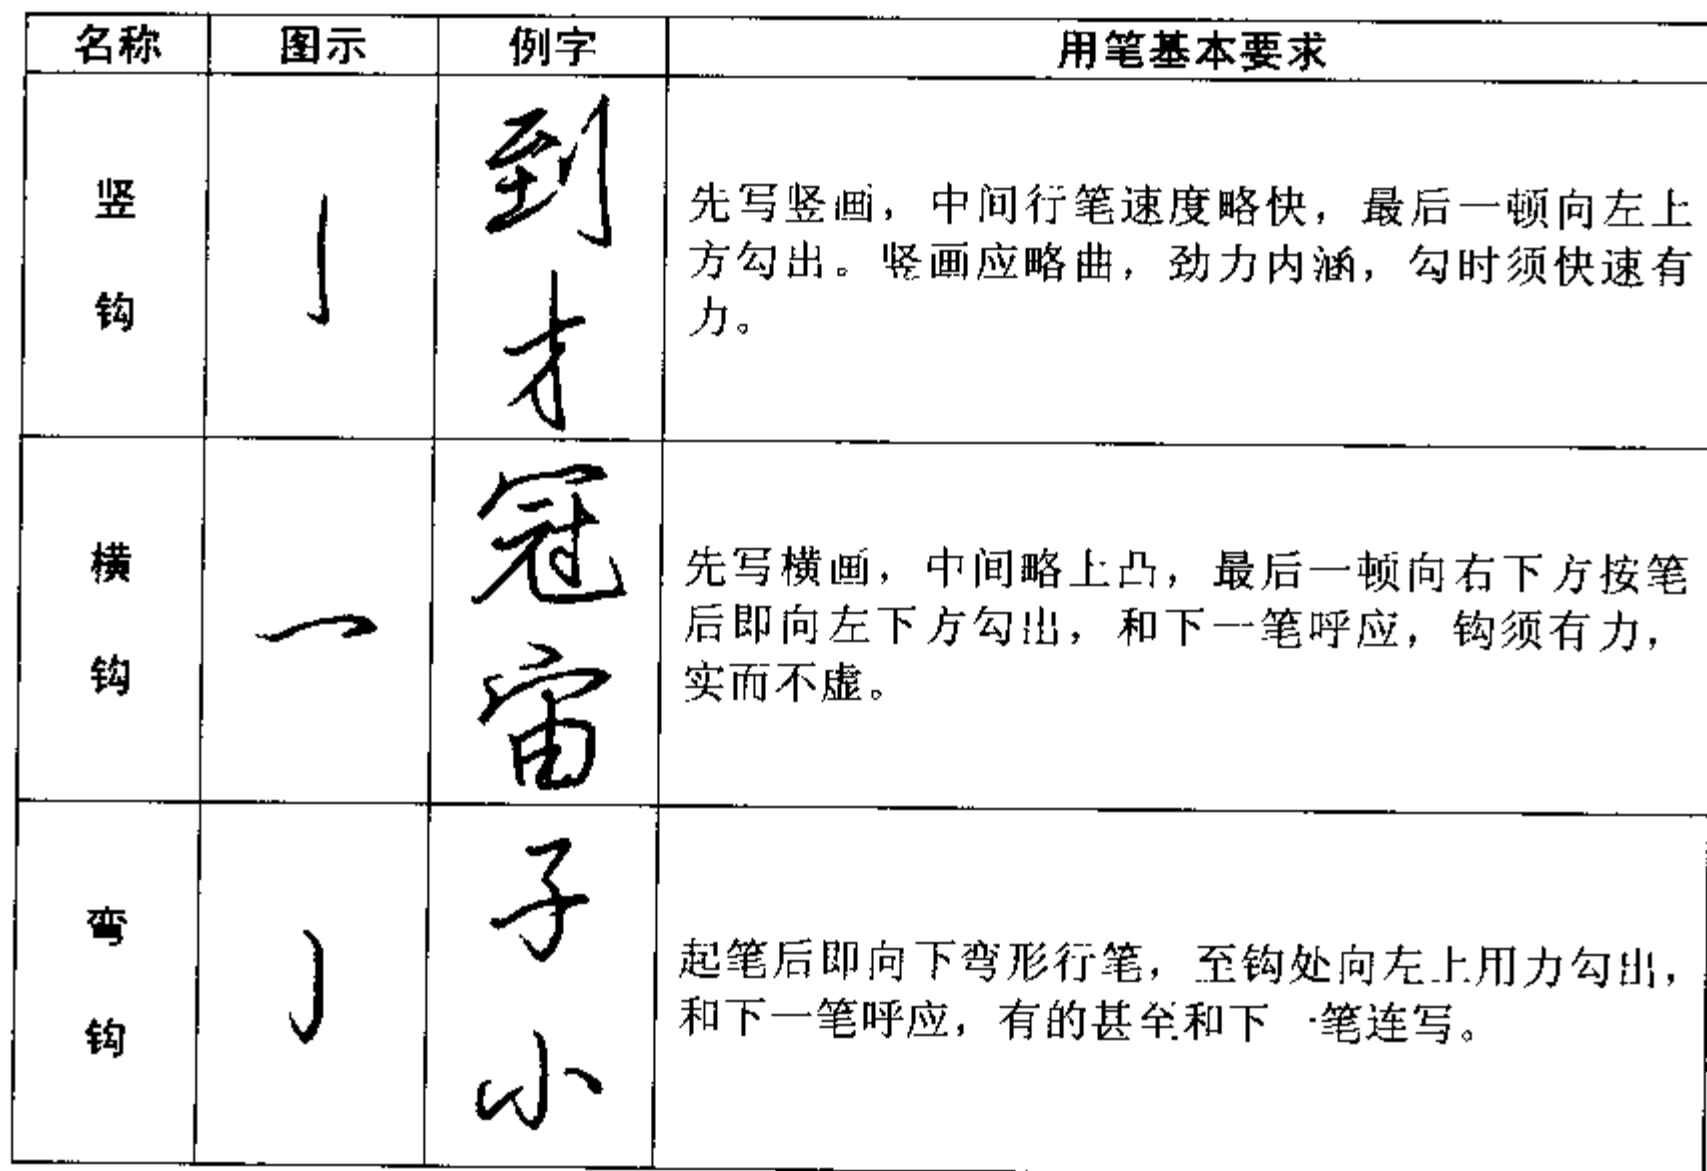 名称 图示 例字 用笔基本要求
竖钩
亅
到
才
先写竖画，中间行笔速度略快，最后一顿向左上
方勾出。竖画应略曲，劲力内涵，勾时须快速有
力。
横钩
乛
冠
宙
先写横画，中间略上凸，最后一顿向右下方按笔
后即向左下方勾出，和下一笔呼应，钩须有力，
实而不虚。
弯钩
子
小
起笔后即向下弯形行笔，至钩处向左上用力勾出，
和下一笔呼应，有的甚至和下一笔连写。